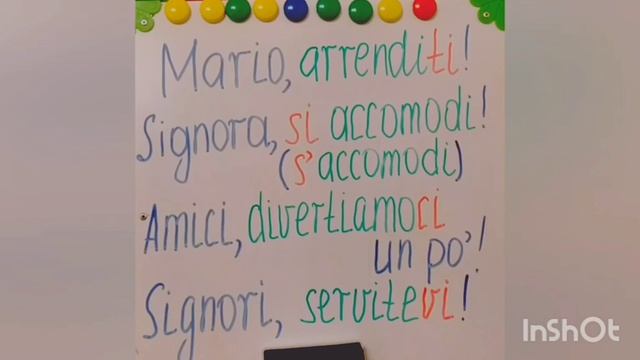 Mario, arrenditi!
Signora, si accomodi!
(s'accomodi)
Amici, divertiamoci
un po'!
Signori, servitevi!
InShOt